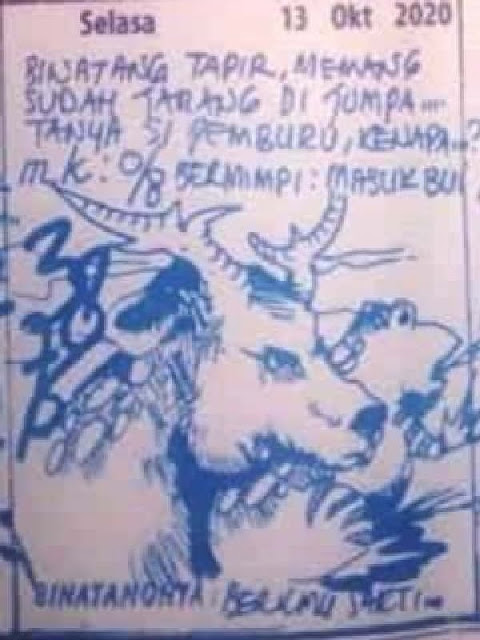 Selasa 13 Okt 2020
BINATANG TAPIR, MEMANG
SUDAH JARANG DI JUMPA...
TANYA SI PEMBURU, KENAPA..?
MK: 0/8 BERMIMPI: MASUK BUI
BINATANGNYA: BERILMU SAKTI...